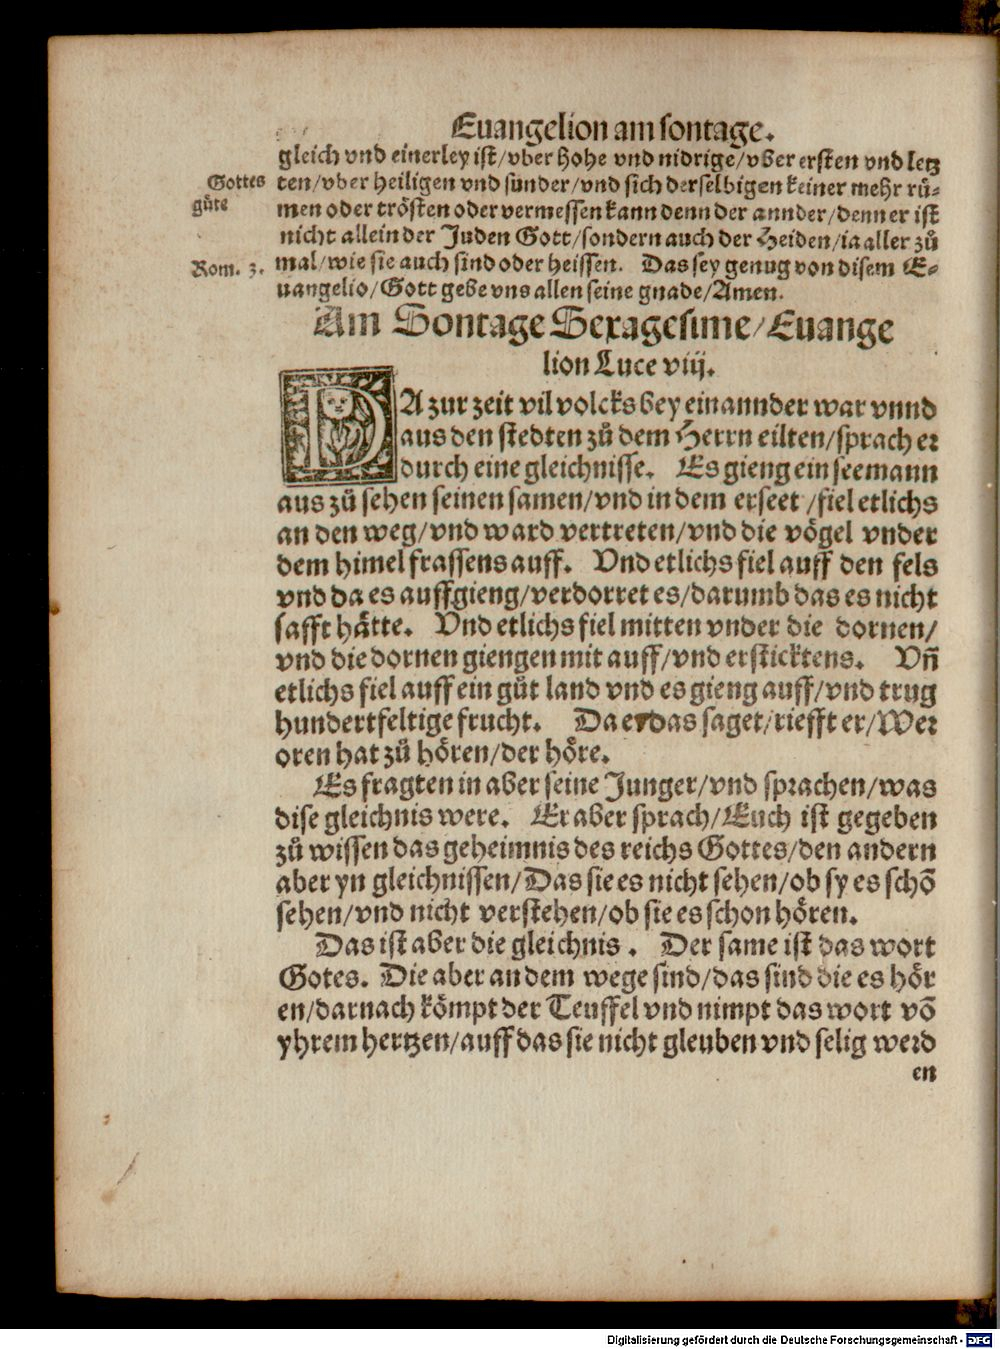 Euangelion am sontage.
gleich vnd einerley ist/vber hohe vnd nidrige/vber ersten vnd letz
Gottes
güte
ten/vber heiligen vnd sunder/vnd sich derselbigen keiner mehr rů-
men oder trösten oder vermessen kann denn der annder/denn er ist
nicht allein der Juden Gott/sondern auch der Heiden/ia aller zů
Rom. 3.
mal/wie sie auch sind oder heissen. Das sey genug von disem E-
uangelio/Gott gebe vns allen seine gnade/Amen.
Am Sontage Sexagesime/Euange
lion Luce viij.
DA zur zeit vil volcks bey einannder war vnnd
aus den stedten zů dem Herrn eilten/sprach er
durch eine gleichnisse. Es gieng ein seemann
aus zů sehen seinen samen/vnd in dem erseet/fiel etlichs
an den weg/vnd ward vertreten/vnd die vögel vnder
dem himel frassens auff. Vnd etlichs fiel auff den fels
vnd da es auffgieng/verdorret es/darumb das es nicht
safft hätte. Vnd etlichs fiel mitten vnder die dornen/
vnd die dornen giengen mit auff/vnd ersticktens. Vñ
etlichs fiel auff ein gůt land vnd es gieng auff/vnd trug
hundertfeltige frucht. Da er das saget/riefft er/Wer
oren hat zů hören/der höre.
Es fragten in aber seine Junger/vnd sprachen/was
dise gleichnis were. Er aber sprach/Euch ist gegeben
zů wissen das geheimnis des reichs Gottes/den andern
aber yn gleichnissen/Das sie es nicht sehen/ob sy es schō
sehen/vnd nicht verstehen/ob sie es schon hören.
Das ist aber die gleichnis. Der same ist das wort
Gotes. Die aber an dem wege sind/das sind die es hör
en/darnach kömpt der Teuffel vnd nimpt das wort vō
yhrem hertzen/auff das sie nicht gleuben vnd selig werd
en
Digitalisierung gefördert durch die Deutsche Forschungsgemeinschaft - DFG